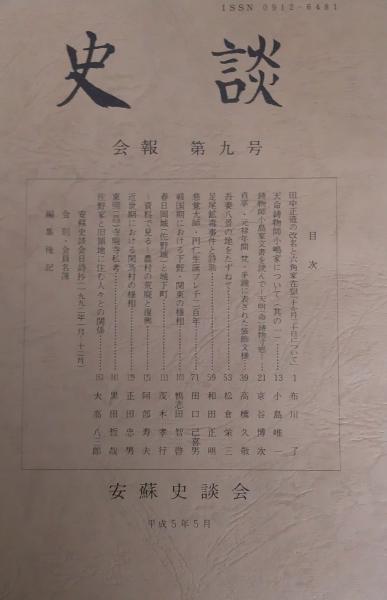 ISSN 0912-6481
史談
会報 第九号
目次
田中正造の改名と六角家在獄(十カ月二十日)について 1 布川 了
天命鋳物師小嶋家について(其の一) 13 小島 唯一
鋳物師小島家文書を読んで 21 京谷 博次
貞享・元禄年間 梵・半鐘に表された装飾文様 39 高橋 久敬
吾妻八景の地をたずねて 53 松倉 栄三
足尾鉱毒事件と詩歌 59 和田 正明
慈覚大師・円仁生誕アレ千二百年 71 田口 己喜男
戦国期における下野・関東の様相 鴨志田 智啓
春日岡城(佐野城)と城下町 茂木 孝行
資料で見る 農村の荒廃と復興 阿部 寿夫
近世期における関馬村の様相 正田 忠男
東明(西)寺廃寺私考 黒田 哲哉
佐野家と旧領地に住む人々との関係 大高 八三郎
安蘇史談会日誌抄(一九九二年一月〜十二月)
会則・会員名簿
編集後記
安蘇史談会
平成5年5月